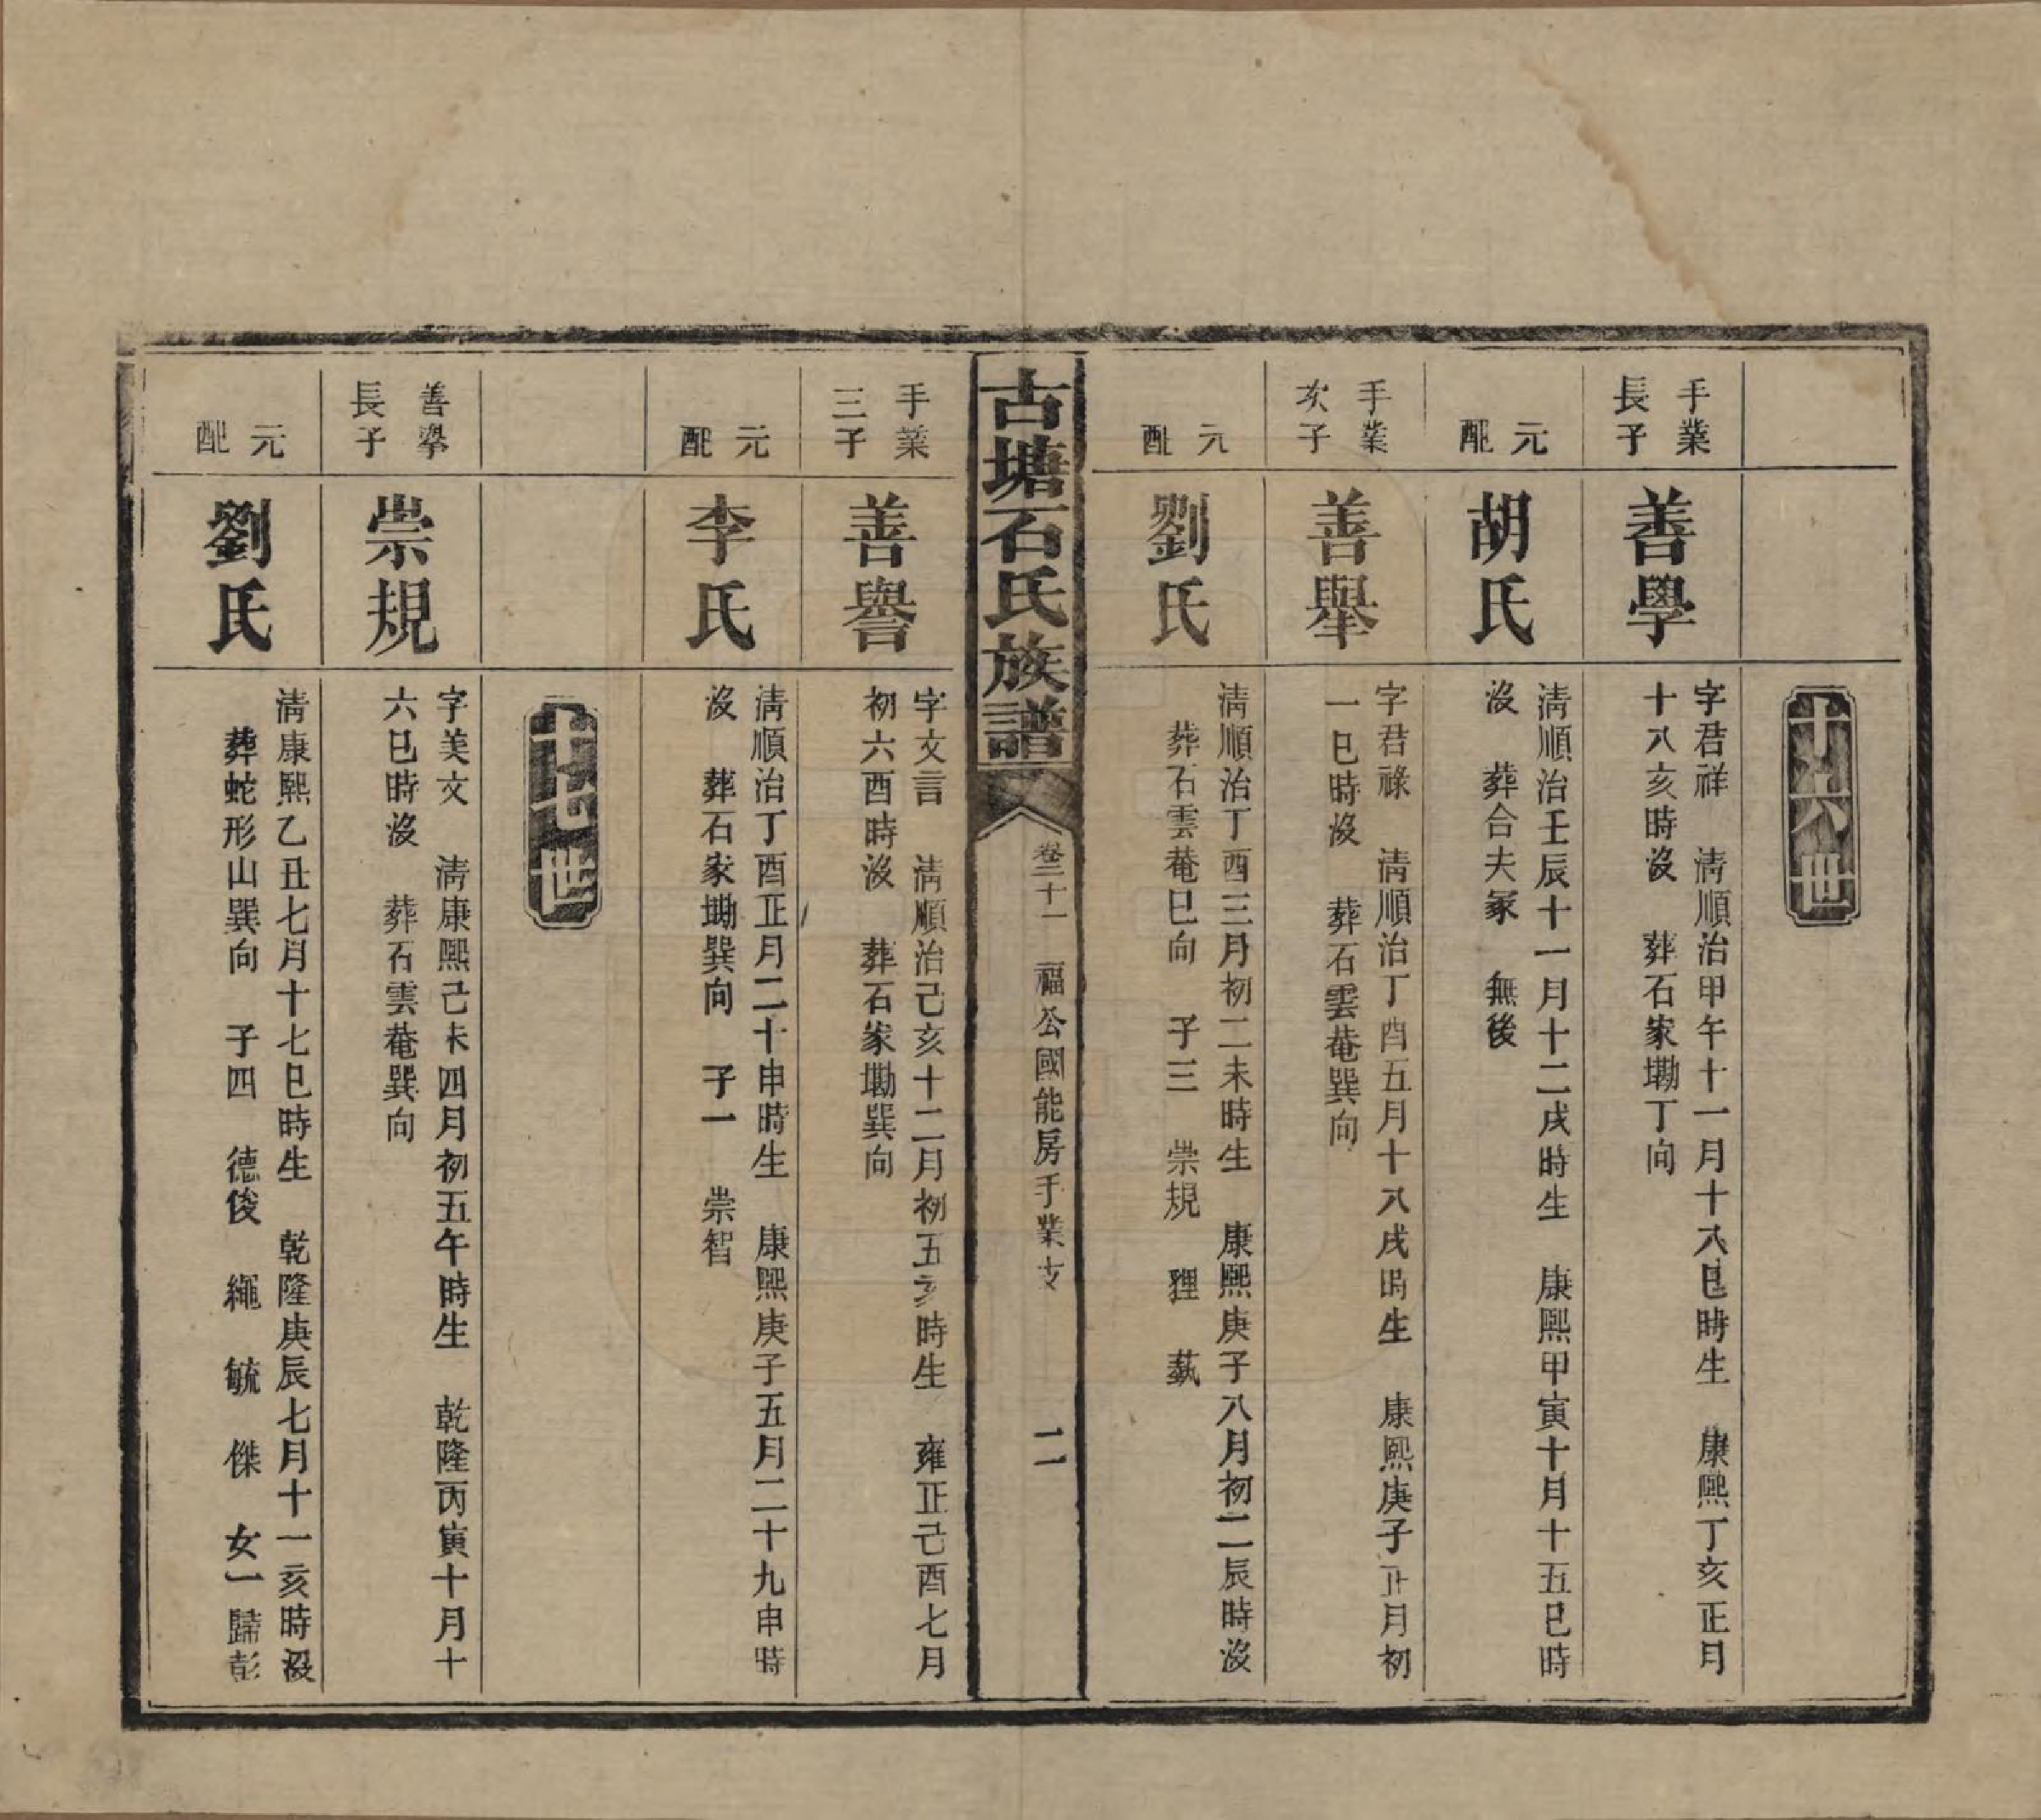 十六世
手業
長子
善學
字君祥　清順治甲午十一月十八巳時生　康熙丁亥正月
十八亥時沒　葬石家墈丁向
元配
胡氏
清順治壬辰十一月十二戌時生　康熙甲寅十月十五巳時
沒　葬合夫冢　無後
手業
次子
善舉
字君祿　清順治丁酉五月十八戌時生　康熙庚子正月初
一巳時沒　葬石雲菴巽向
元配
劉氏
清順治丁酉三月初二未時生　康熙庚子八月初二辰時沒
葬石雲菴巳向　子三　崇規　理　藝
古塘石氏族譜
卷二十一　福公國能房手業支
二
手業
三子
善譽
字文言　清順治己亥十二月初五亥時生　雍正己酉七月
初六酉時沒　葬石家墈巽向
元配
李氏
清順治丁酉正月二十申時生　康熙庚子五月二十九申時
沒　葬石家墈巽向　子一　崇智
十七世
善舉
長子
崇規
字美文　清康熙己未四月初五午時生　乾隆丙寅十月十
六巳時沒　葬石雲菴巽向
元配
劉氏
清康熙乙丑七月十七巳時生　乾隆庚辰七月十一亥時沒
葬蛇形山巽向　子四　德俊　繩　毓　傑　女一歸彭